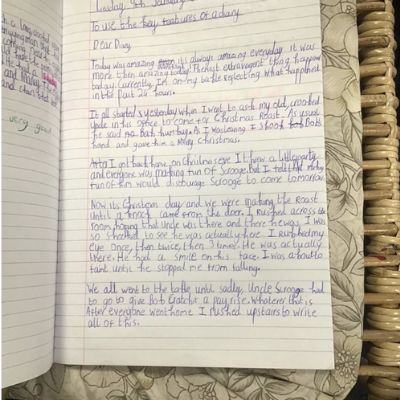 Tuesday 9th January
To use the key features of a diary
Dear Diary
Today was amazing it's always amazing everyday it was
more then amazing today. The most extravagent thing happend
today. Currently I'm on my table reflecting what happened
in the past 24 hours.
It all started yesterday when I went to ask my old, crooked
Uncle in his office to come for Christmas Roast. As usual
he said no bah humbug. As I was leaving I shook Bob's
hand and gave him a Merry Christmas.
After I got back home, on christmas eve I threw a little party
and everyone was making fun of Scrooge but I told that making
fun of him would disturage Scrooge to come tomorrow
Now its Christmas day and we were making the Roast
until a knock came from the door. I rushed across the
room hoping that Uncle was there and there he was. I was
so shocked to see he was actually here. I rubbed my
eye once, then twice, then 3 times. He was actually
there. He had a smile on his face. I was about to
faint until he stopped me from falling.
We all went to the table until sadly, Uncle Scrooge had
to go to give Bob Cratchit a pay rise. Whatever that is
After everyone went home I rushed upstairs to write
all of this.
very good